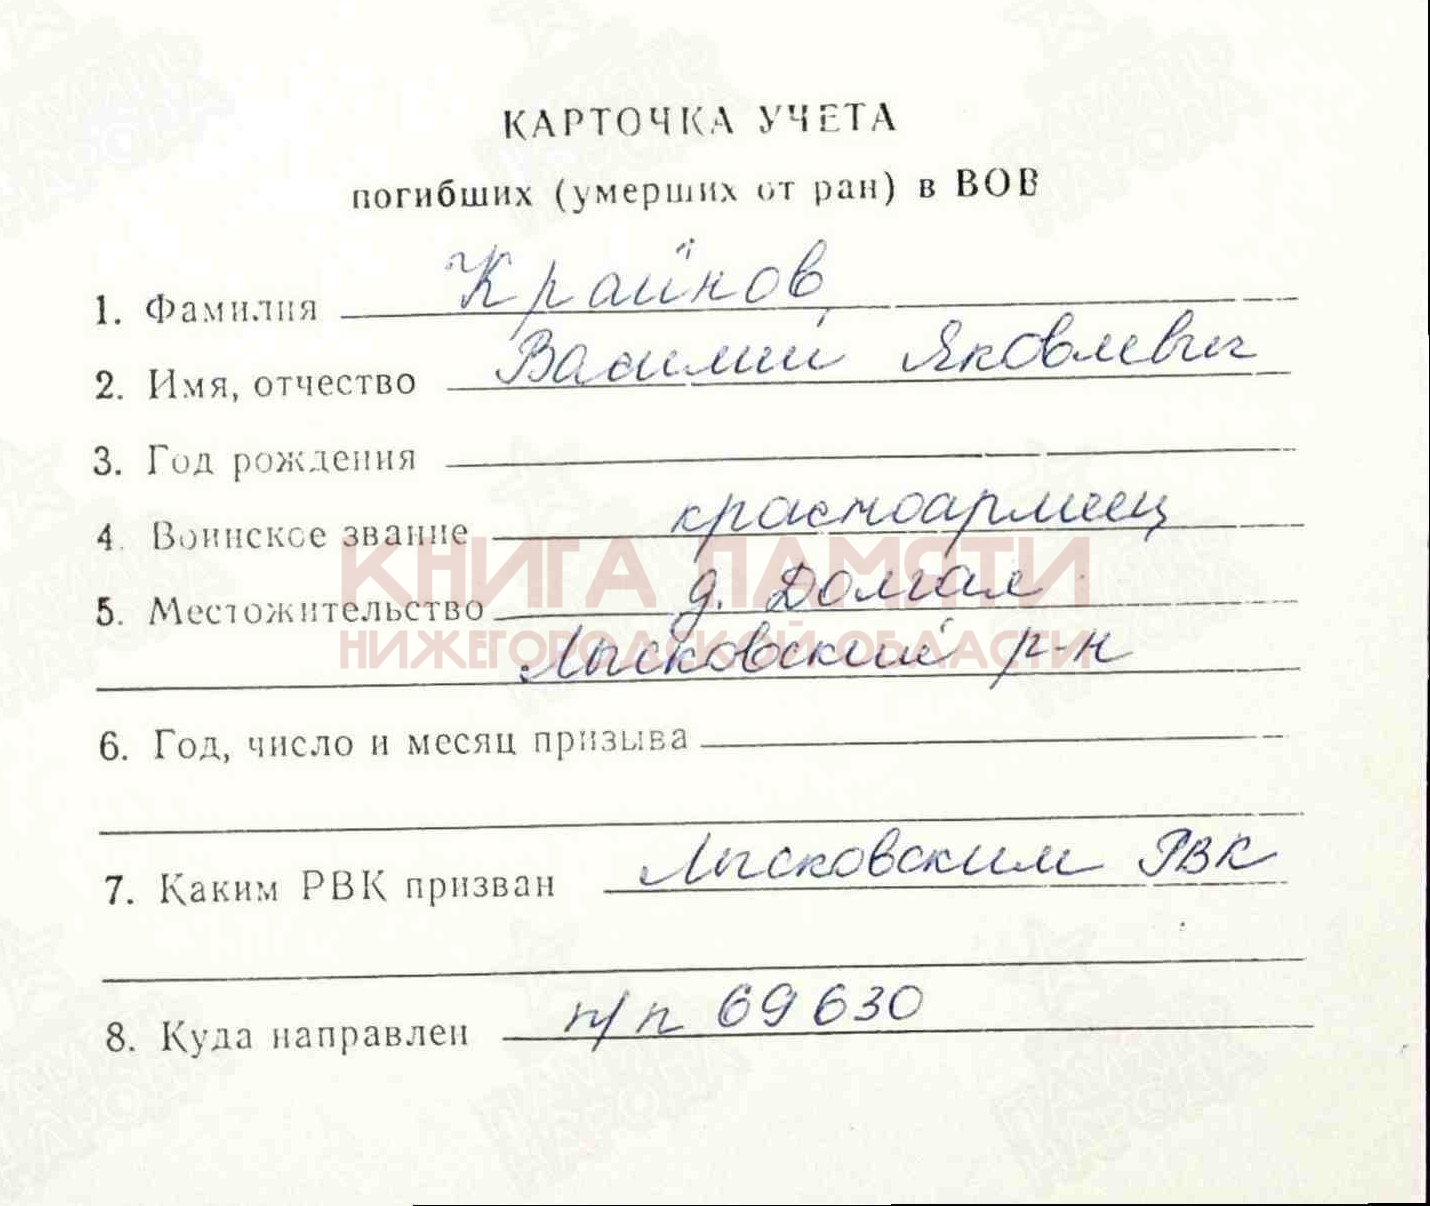 КАРТОЧКА УЧЕТА
погибших (умерших от ран) в ВОВ
1. Фамилия Крайнов
2. Имя, отчество Василий Яковлевич
3. Год рождения
4. Воинское звание красноармеец
КНИГА ПАМЯТИ
5. Местожительство д. Долгая
НИЖЕГОРОДСКОЙ ОБЛАСТИ
Лысковский р-н
6. Год, число и месяц призыва
7. Каким РВК призван Лысковским РВК
8. Куда направлен п/п 69630